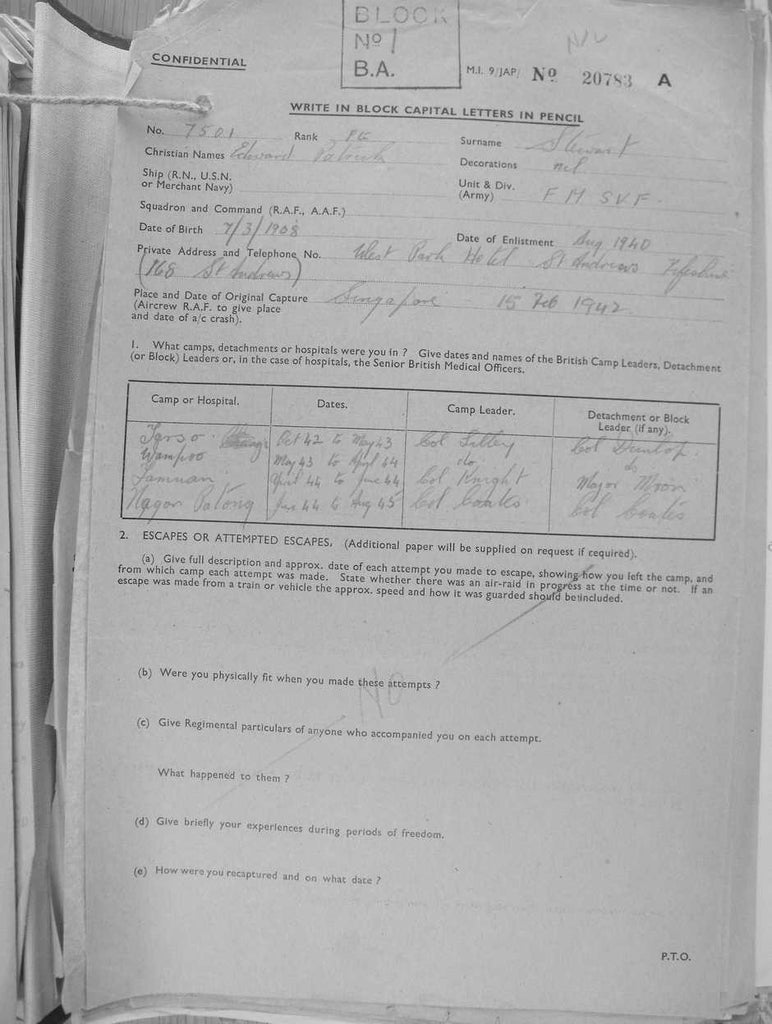 BLOCK
Nº 1
B.A.
CONFIDENTIAL
M.I. 9/JAP/ Nº 20783 A
WRITE IN BLOCK CAPITAL LETTERS IN PENCIL
No. 7501 Rank Pte Surname Stewart
Christian Names Edward Patrick Decorations nil
Ship (R.N., U.S.N. or Merchant Navy) Unit & Div. (Army) F M S V F.
Squadron and Command (R.A.F., A.A.F.)
Date of Birth 7/3/1908 Date of Enlistment Aug 1940
Private Address and Telephone No. West Park Hotel St Andrews Fifeshire
(168 St Andrews)
Place and Date of Original Capture Singapore 15 Feb 1942
(Aircrew R.A.F. to give place
and date of a/c crash).
1. What camps, detachments or hospitals were you in ? Give dates and names of the British Camp Leaders, Detachment
(or Block) Leaders or, in the case of hospitals, the Senior British Medical Officers.
Camp or Hospital. Dates. Camp Leader. Detachment or Block Leader (if any).
Tarso Oct 42 to May 43 Col Lilley Col Dunlop
Wampoo May 43 to April 44 do. do
Tamuan April 44 to June 44 Col Knight Major Moon
Nagon Patong Jun 44 to Aug 45 Col Coates Col Coates
2. ESCAPES OR ATTEMPTED ESCAPES. (Additional paper will be supplied on request if required).
(a) Give full description and approx. date of each attempt you made to escape, showing how you left the camp, and
from which camp each attempt was made. State whether there was an air-raid in progress at the time or not. If an
escape was made from a train or vehicle the approx. speed and how it was guarded should be included.
(b) Were you physically fit when you made these attempts ?
NO
(c) Give Regimental particulars of anyone who accompanied you on each attempt.
What happened to them ?
(d) Give briefly your experiences during periods of freedom.
(e) How were you recaptured and on what date ?
P.T.O.